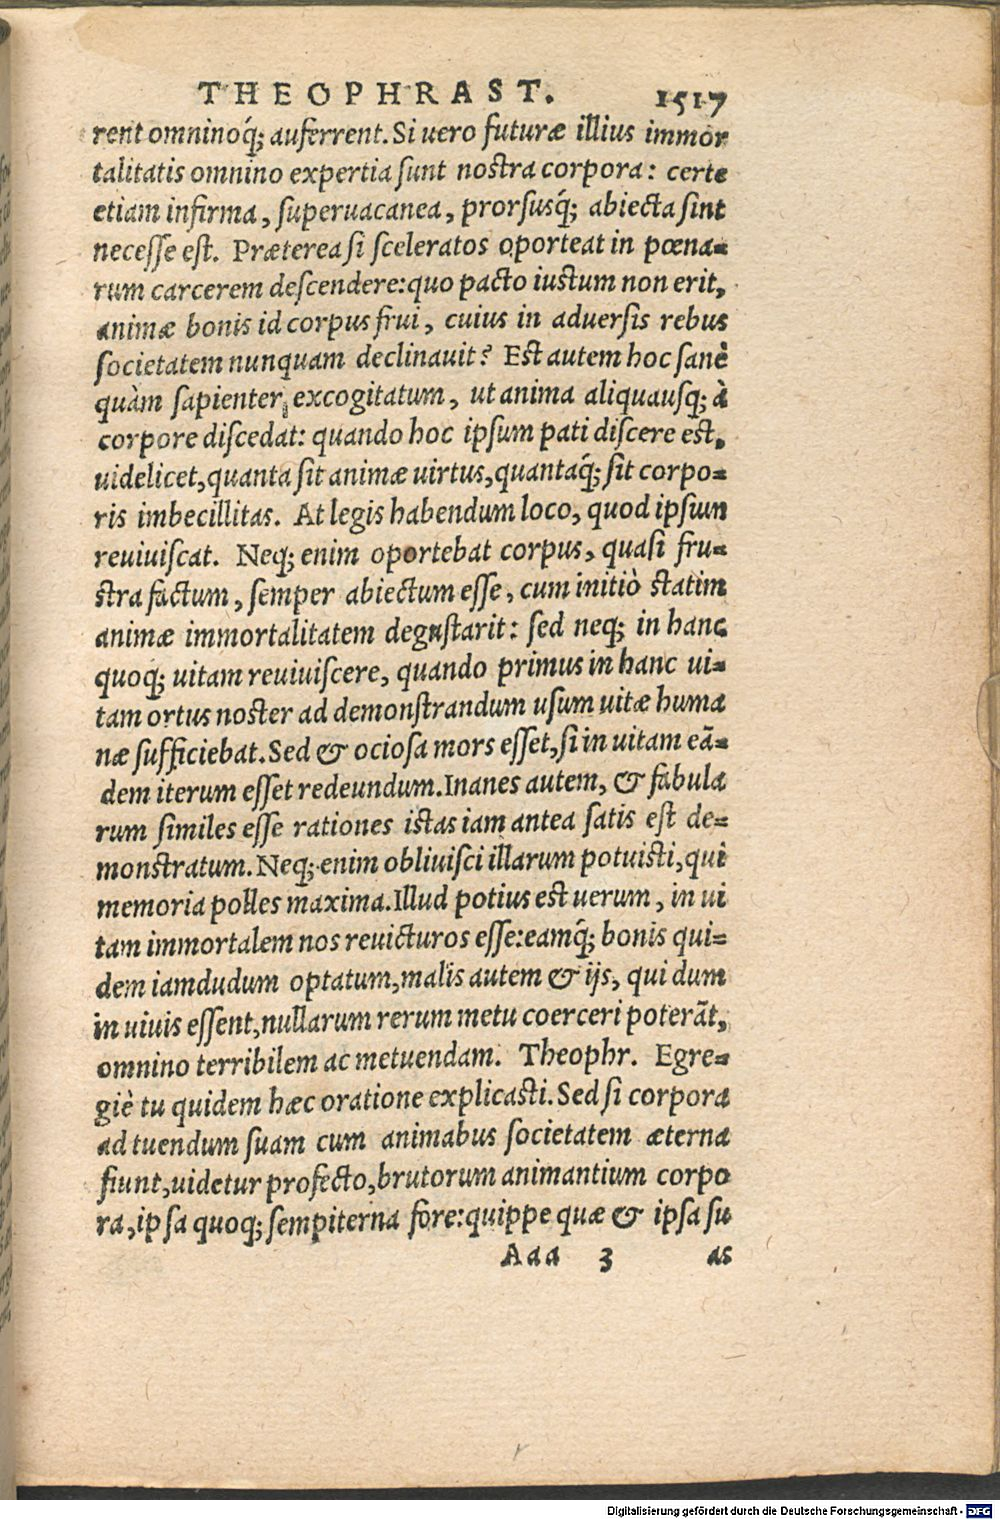 THEOPHRAST. 1517
rent omninoq́; auferrent. Si uero futuræ illius immor
talitatis omnino expertia ſunt noſtra corpora: certe
etiam infirma, ſuperuacanea, prorſusq́; abiecta ſint
neceſſe eſt. Præterea ſi ſceleratos oporteat in pœna-
rum carcerem deſcendere: quo pacto iuſtum non erit,
animæ bonis id corpus frui, cuius in aduerſis rebus
ſocietatem nunquam declinauit? Eſt autem hoc ſanè
quàm ſapienter excogitatum, ut anima aliquauſq; à
corpore diſcedat: quando hoc ipſum pati diſcere eſt,
uidelicet, quanta ſit animæ uirtus, quantaq́; ſit corpo-
ris imbecillitas. At legis habendum loco, quod ipſum
reuiuiſcat. Neq; enim oportebat corpus, quaſi fru-
ſtra factum, ſemper abiectum eſſe, cum initiò ſtatim
animæ immortalitatem deguſtarit: ſed neq; in hanc
quoq; uitam reuiuiſcere, quando primus in hanc ui-
tam ortus noſter ad demonſtrandum uſum uitæ huma
næ ſufficiebat. Sed & ocioſa mors eſſet, ſi in uitam eã-
dem iterum eſſet redeundum. Inanes autem, & fabula
rum ſimiles eſſe rationes iſtas iam antea ſatis eſt de-
monſtratum. Neq; enim obliuiſci illarum potuiſti, qui
memoria polles maxima. Illud potius eſt uerum, in ui
tam immortalem nos reuicturos eſſe: eamq́; bonis qui-
dem iamdudum optatum, malis autem & ijs, qui dum
in uiuis eſſent, nullarum rerum metu coerceri poterãt,
omnino terribilem ac metuendam. Theophr. Egre-
giè tu quidem hæc oratione explicaſti. Sed ſi corpora
ad tuendum ſuam cum animabus ſocietatem æterna
fiunt, uidetur profecto, brutorum animantium corpo
ra, ipſa quoq; ſempiterna fore: quippe quæ & ipſa ſu
Aaa 3 as
Digitalisierung gefördert durch die Deutsche Forschungsgemeinschaft - DFG